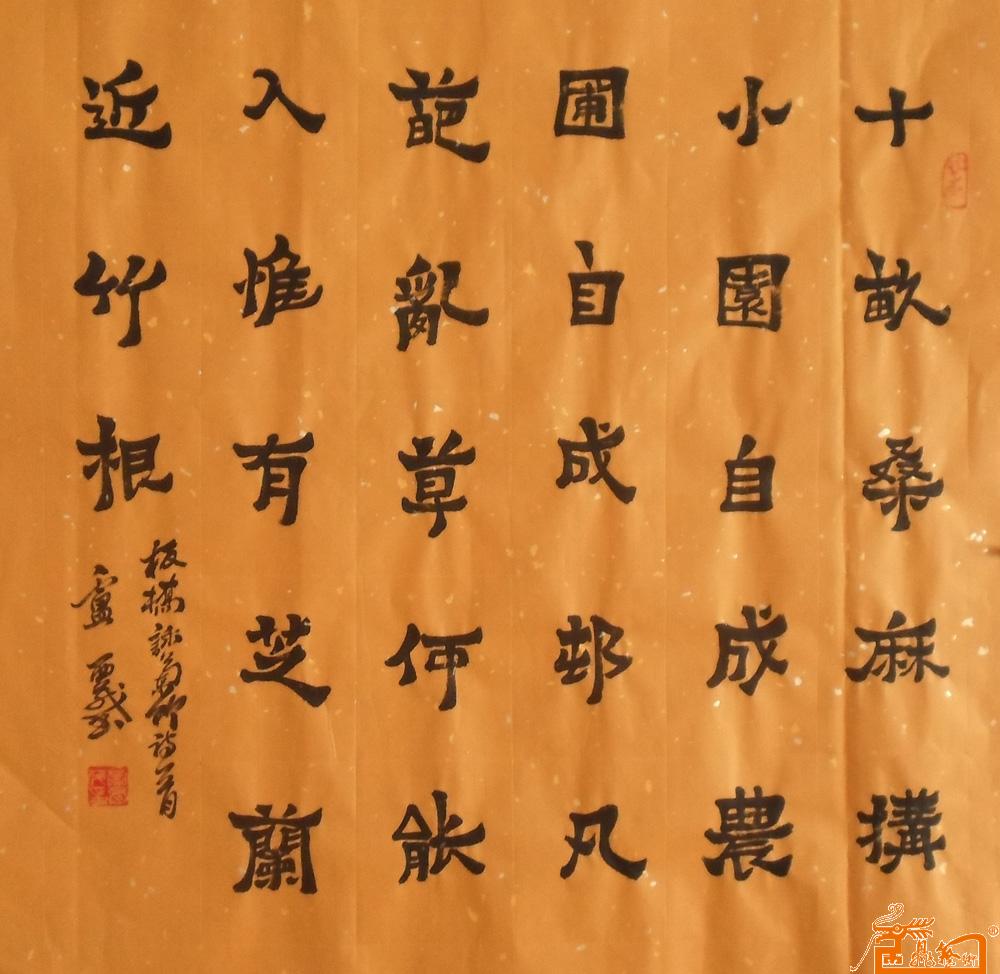 十畝桑麻搆
小園自成農
圃自成邨凡
葩亂草何能
入惟有芝蘭
近竹根
板橋詠蘭竹詩一首
盧